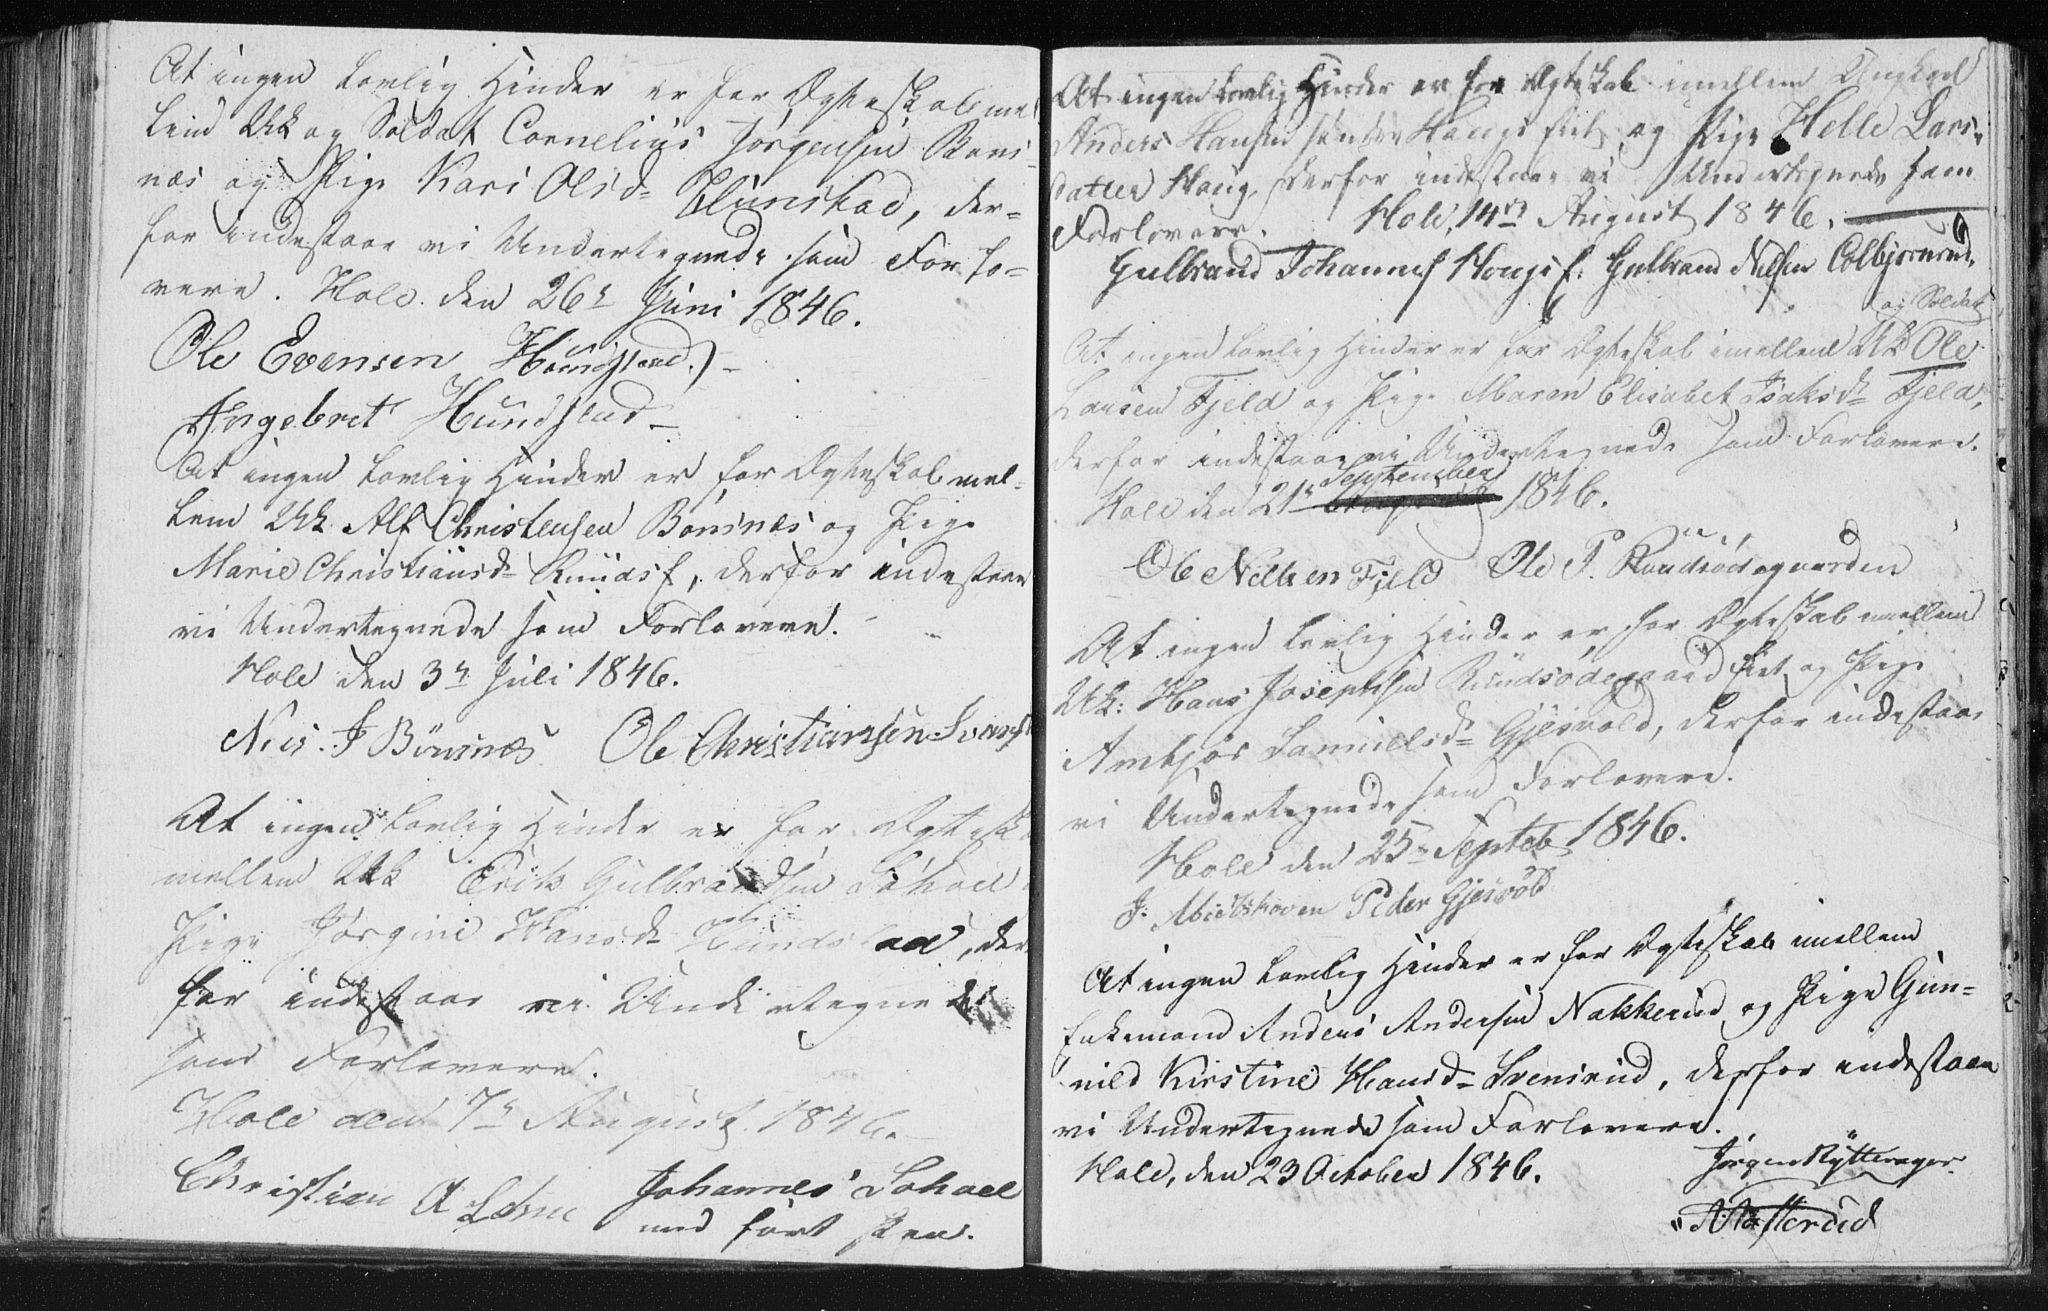 At ingen lovlig Hinder er for Ægteskab mel
lem Ukk og Soldat Cornelius Jørgensen
næs og Pige Kari Olsd. Hunstad, der-
for indestaae vi Undertegnede som Forlo-
vere. Hole den 26d Juni 1846.
Ole Evensen Hundstad.
Engebret Hundstad
At ingen lovlig Hinder er for Ægteskab mel-
lem Ukk Alf Christensen Bønsnæs og Pige
Marie Christiansd. Kundsf, derfor indestaae
vi Undertegnede som Forlovere.
Hole den 3d Juli 1846.
J Bönsnæs Ole Christiansen
At ingen lovlig Hinder er for Ægtesk
mellem Ukk Erik Gulbrandsen Søhoel
Pige Jørgine Hansd. Hundstad, der
for indestaae vi Undertegnede
som Forlovere.
Hole den 7d August 1846.
Christian A Johannes Søhoel
med ført Pen.
At ingen lovlig Hinder er for Ægteskab imellem Ungkarl
Anders Hansen søndre Haugs Eiet og Pige Helle Lars-
datter Haug, derfor indestaae vi Undertegnede som
Forlovere. Hole, 14d August 1846.
Gulbrand Johannes Hougs E. Gulbrand Nilsen Colbjørnrud.
og Soldat
At ingen lovlig Hinder er for Ægteskab imellem Uk Ole
Larsen Fjeld og Pige Maren Elisabet Isaksd. Fjeld,
derfor indestaae vi Undertegnede som Forlovere.
September
Hole den 21d 1846.
Ole Nilsen Fjeld Ole P. Rundsödegaarden
At ingen lovlig Hinder er for Ægteskab imellem
Uk: Hans Josephsen Rundsødegaard Eiet og Pige
Ambjør Samuelsd. Gjesvold, derfor indestaae
vi Undertegnede som Forlovere.
Hole den 25d Septeb 1846.
J. Mieltshoven Peder Gjesvold
At ingen lovlig Hinder er for Ægteskab imellem
Enkemand Anders Andersen Nakkerud og Pige Gun-
nild Kirstine Hansd. Svensrud, derfor indestaae
vi Undertegnede som Forlovere.
Hole, den 23 October 1846.
Jørgen Rytterager